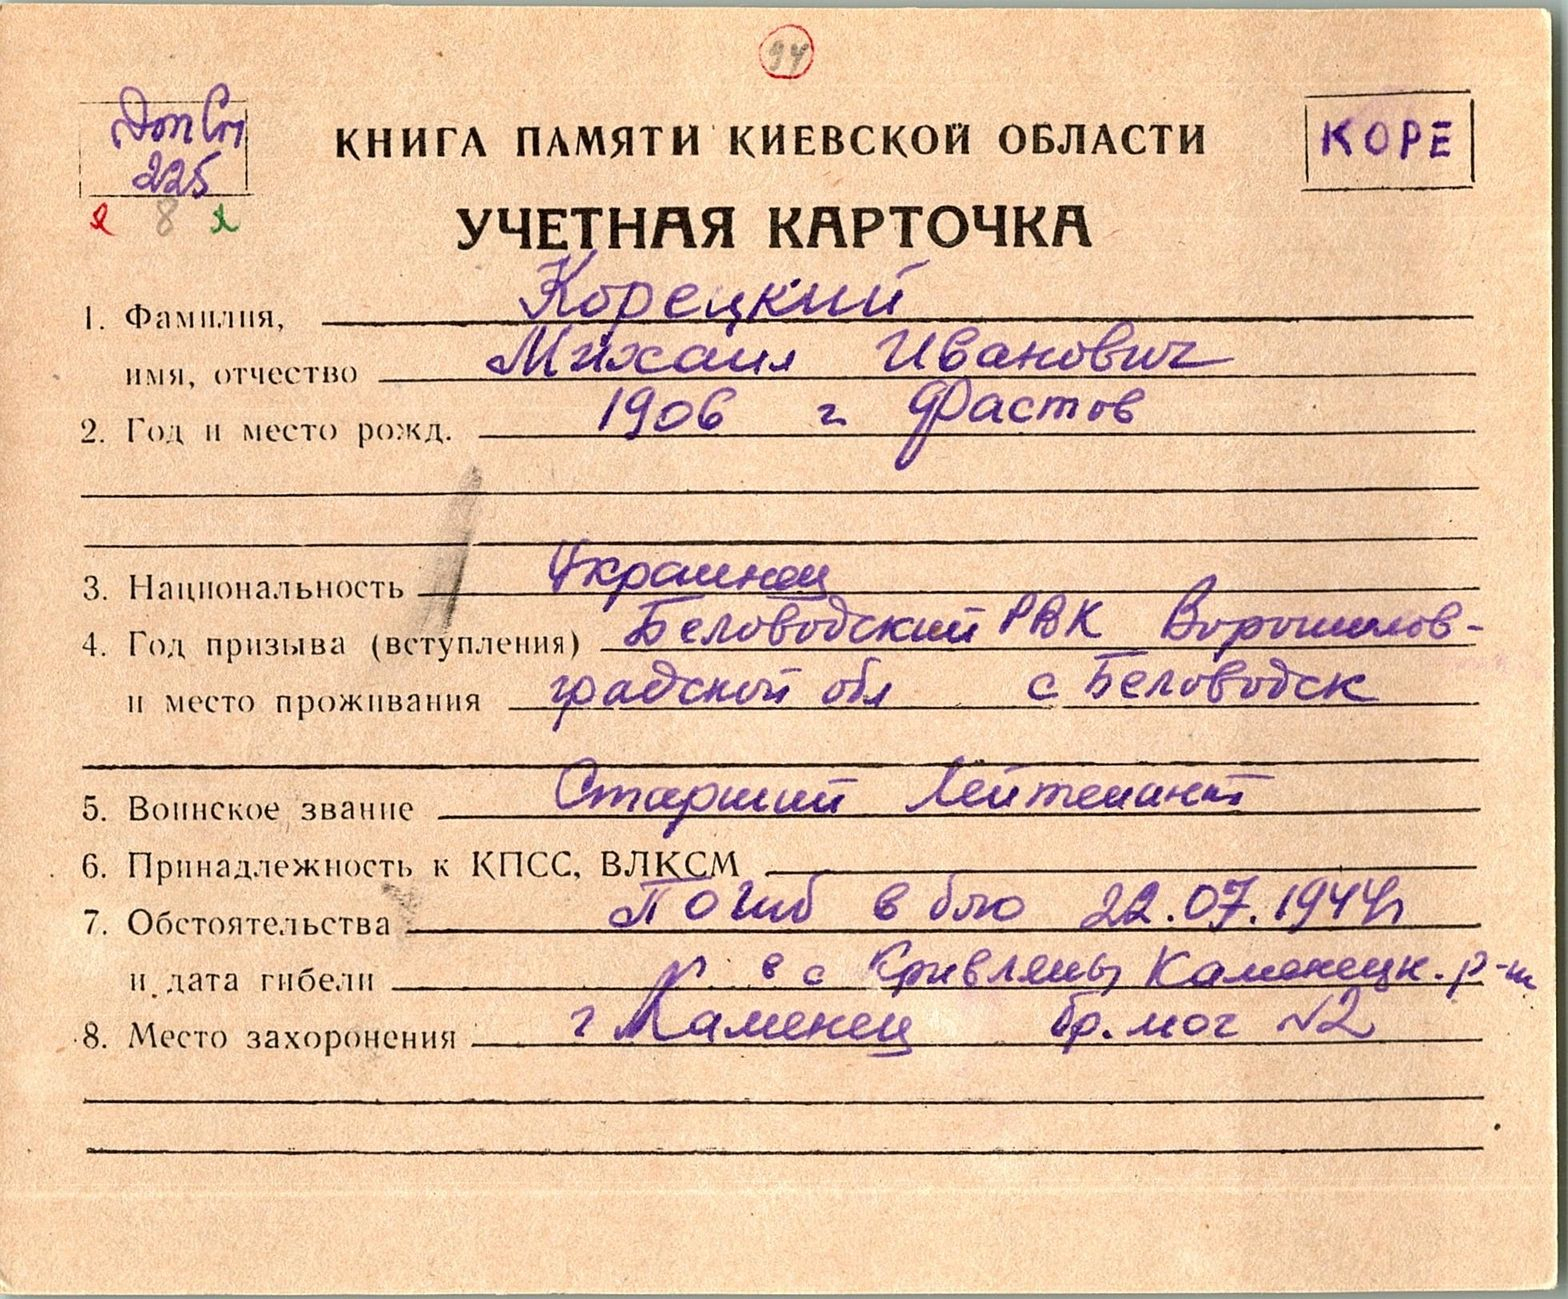 94
Доп Сп
225
8
КОРЕ
КНИГА ПАМЯТИ КИЕВСКОЙ ОБЛАСТИ
УЧЕТНАЯ КАРТОЧКА
1. Фамилия, Корецкий
имя, отчество Михаил Иванович
2. Год и место рожд. 1906 г Фастов
3. Национальность Украинец
4. Год призыва (вступления) Беловодский РВК Ворошилов-
и место проживания градской обл с Беловодск
5. Воинское звание Старший Лейтенант
6. Принадлежность к КПСС, ВЛКСМ
7. Обстоятельства Погиб в бою 22.07.1944г
и дата гибели р в с Кривляны Каменецк. р-н
8. Место захоронения г Каменец бр. мог №2